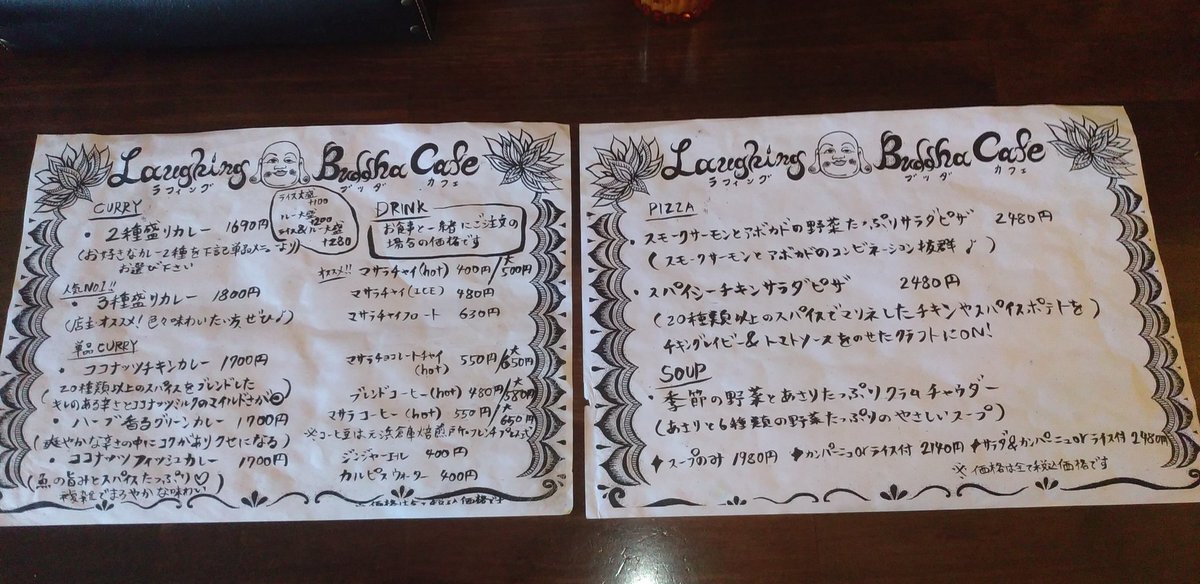 Laughing Buddha Cafe
ラフィング ブッダ カフェ
CURRY
・2種盛りカレー 1690円
(お好きなカレー2種を下記単品メニューより)
お選び下さい
人気NO1!!
・3種盛りカレー 1800円
(店主オススメ!色々味わいたい方ぜひ♪)
単品CURRY
・ココナッツチキンカレー 1700円
(20種類以上のスパイスをブレンドした
キレのある辛さとココナッツミルクのマイルドさが)
・ハーブ香るグリーンカレー 1700円
(爽やかな辛さの中にコクがありクセになる)
・ココナッツフィッシュカレー 1700円
(魚の旨みとスパイスたっぷり♡)
複雑でまろやかな味わい
ライス大盛
+100
ルー大盛
+200
ライス&ルー大盛
+280
DRINK
お食事と一緒にご注文の
場合の価格です
オススメ!! マサラチャイ(hot) 400円/大500円
マサラチャイ(ICE) 480円
マサラチャイフロート 630円
マサラチョコレートチャイ(hot) 550円/大650円
ブレンドコーヒー(hot) 480円/大580円
マサラコーヒー(hot) 550円/大650円
※コーヒー豆は元浜倉庫焙煎所・フレンチ
ジンジャーエール 400円
カルピスウォーター 400円
※価格は全て税込価格です
Laughing Buddha Cafe
ラフィング ブッダ カフェ
PIZZA
・スモークサーモンとアボカドの野菜たっぷりサラダピザ 2480円
(スモークサーモンとアボカドのコンビネーション抜群♪)
・スパイシーチキンサラダピザ 2480円
(20種類以上のスパイスでマリネしたチキンやスパイスポテトを)
チキングレイビー&トマトソースをのせたクラフトにON!
SOUP
・季節の野菜とあさりたっぷりクラムチャウダー
(あさりと6種類の野菜たっぷりのやさしいスープ)
♦スープのみ 1980円 ♦カンパーニュorライス付 2140円 ♦サラダ&カンパーニュorライス付 2480円
※価格は全て税込価格です